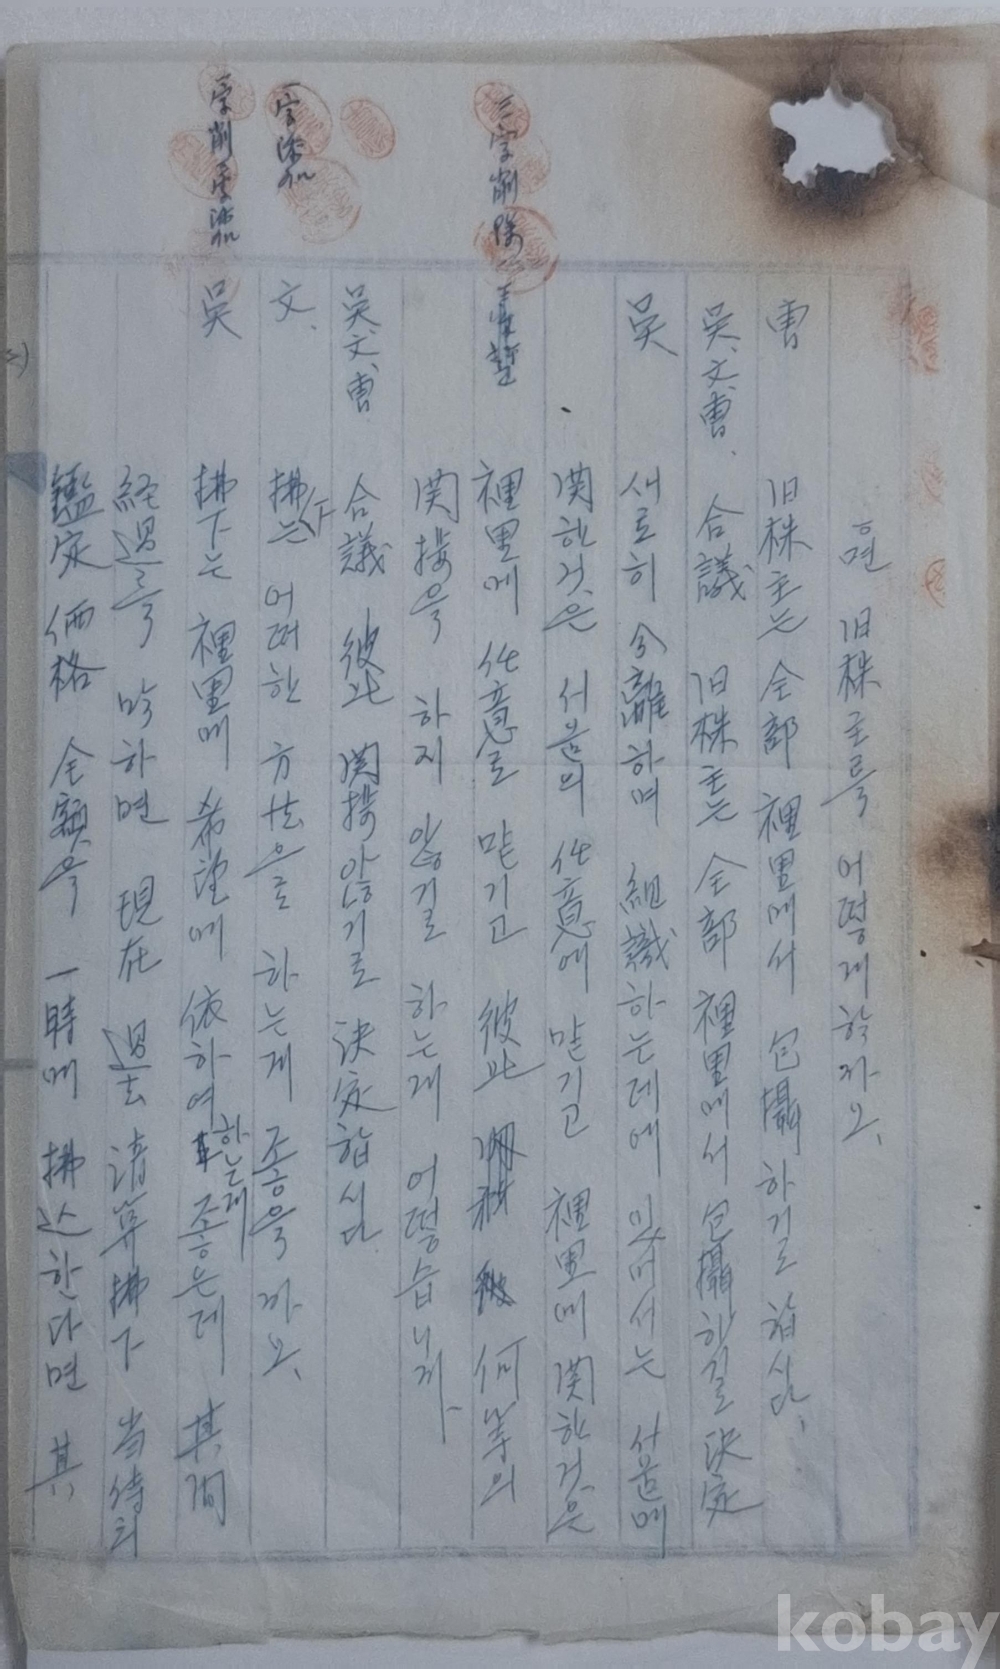 면 旧株主를 어떻게 할까요.
曺 旧株主는 全部 裡里에서 包攝하기로 합시다.
吳.文.曺. 合議 旧株主는 全部 裡里에서 包攝하길 決定
吳 새로히 分離하며 組織하는데에 있어서는 서울에
関한것은 서울의 任意에 맡기고 裡里에 関한것은
裡里에 任意로 맡기고 彼此 何等의
関接을 하지 않길로 하는게 어떻습니까.
吳.文.曺. 合議 彼此 関接 않기로 決定합시다
文. 拂下는 어떠한 方法으로 하는게 좋을까요.
吳 拂下는 裡里에 希望에 依하여 한는게 좋은데 其間
経過를 말하면 現在 過去 淸算 拂下 当侍의
鑑定 価格 全額을 一時에 拂込한다면 其
三字削除
一字添加
一字削 一字添加
kobay